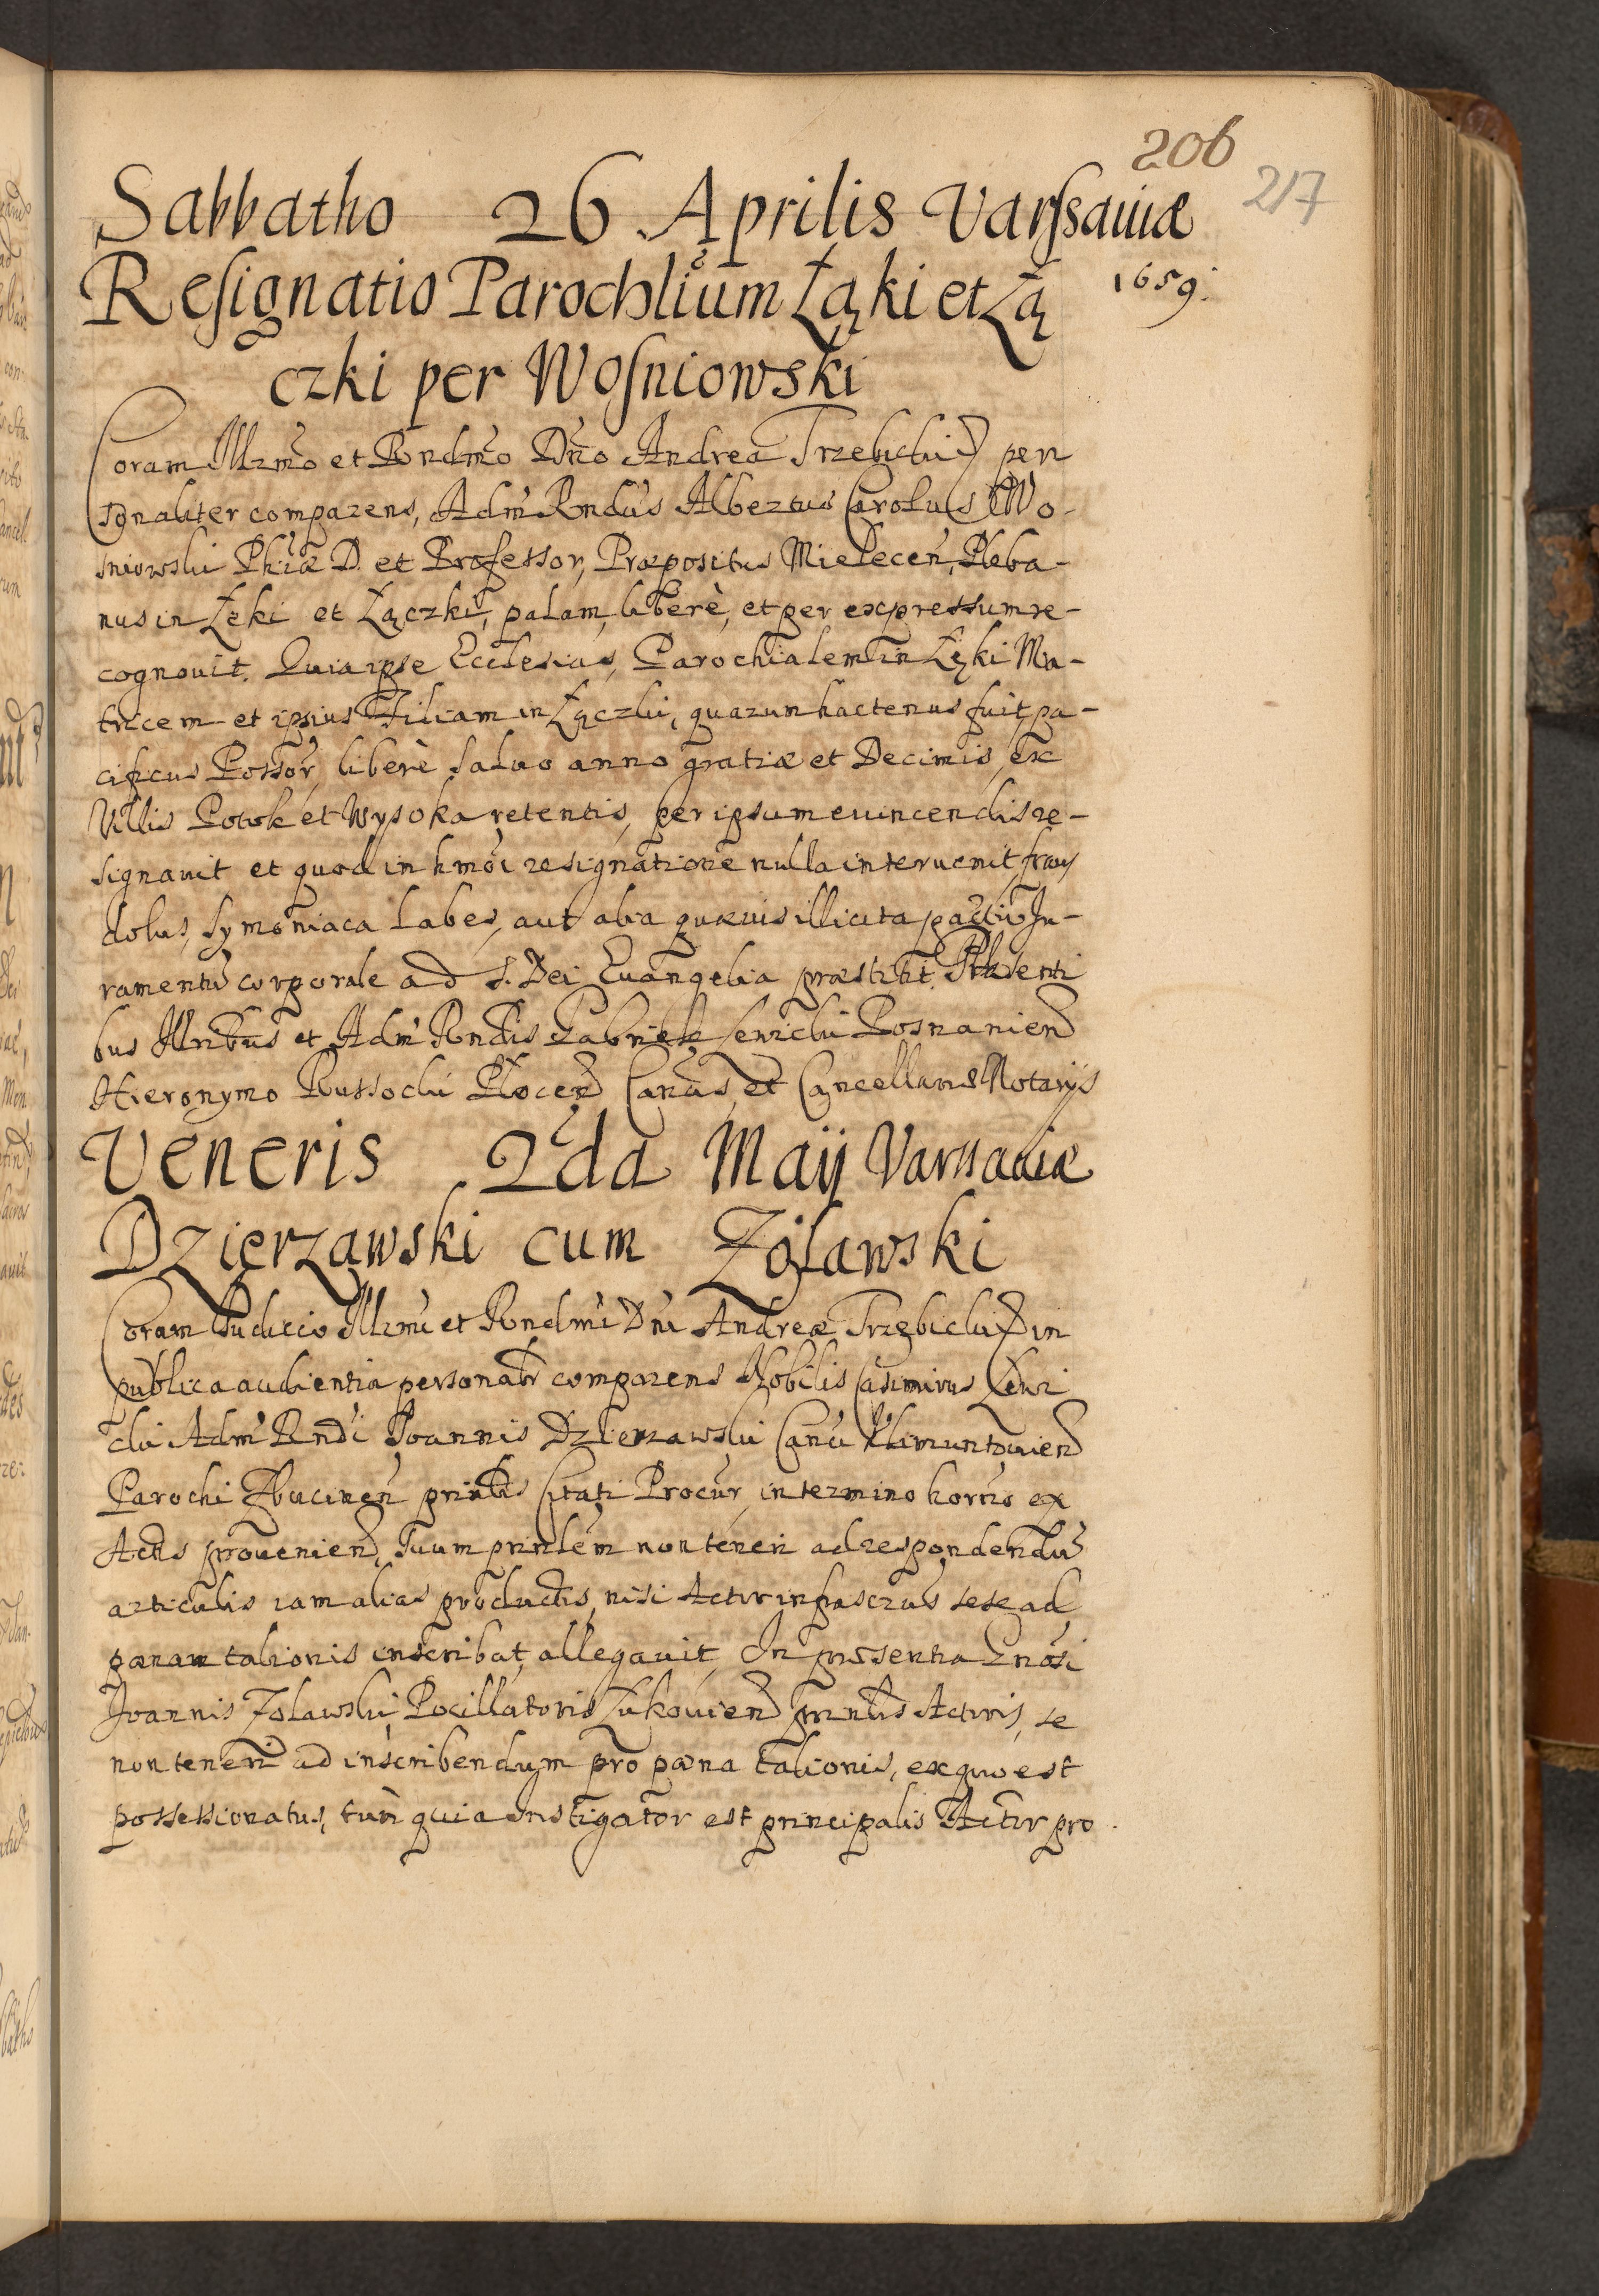 206
217
Sabbatho 26 Aprilis Varssauiæ
1659.
Resignatio Parochliũm Łąki et Łą
czki per Wosniowski
Coram Illrmo et Rndmo Dno Andrea Trzebicki per
sonaliter comparens, Adm Rndus Albertus Carolus Wo-
sniowski Phiæ D. et Professor, Præpositus Mielecen, Pleba-
nus in Łęki et Łączki, palam, liberè, et per expressum re-
cognouit. Quia ipse Ecclesias, Parochialem in Łęki Ma-
tricem et ipsius Filiam in Łączki, quarum hactenus fuit pa-
cificus Possor, liberè saluo anno gratiæ et Decimis, ex
Villis Potok et Wysoka retentis, per ipsum euincendis re-
signauit et quod in hmoi resignatione nulla interuenit fraus
dolus, symoniaca labes, aut alia quæuis illicita pactio Ju-
ramentu corporale ad S. Dei Euangelia præstitit. Præsenti
bus Illribus et Adm Rndis Gabriele Posnanien
Hieronymo Russocki Plocen Cancis, et Cancellariæ Notarijs
Veneris 2da Maij Varssauiæ
Dzierzawski cum Żoławski
Coram Judicio Illrmi et Rndmi Dni Andreæ Trzebicki in
publica audientia personalr comparens Nobilis Casimirus
cki Adm Rndi Joannis Dzierzawski Canci Klimuntouien
Parochi Zbucinen prinlis Citati Procur, in termino horno ex
Actis prouenien, suum prinlem non teneri ad respondendu
articulis iam alias productis, nisi Actor infrascrus sese ad
pænam talionis inscribat, allegauit, In præsentia Gnosi
Joannis Zolawski Pocillatoris Łukouien prinlis Actoris, se
non teneri ad inscribendum pro pæna talionis, ex quo est
possessionatus, tum quia Instigator est principalis Actor pro